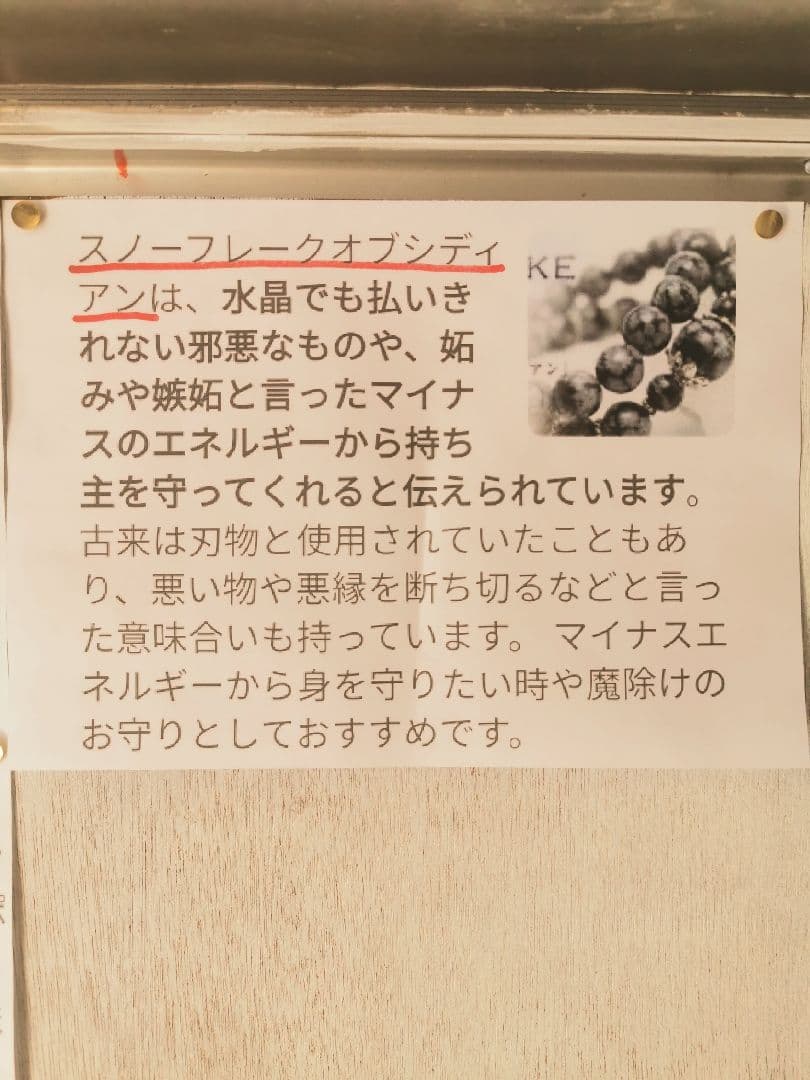 スノーフレークオブシディ
アンは、水晶でも払いき
れない邪悪なものや、妬
みや嫉妬と言ったマイナ
スのエネルギーから持ち
主を守ってくれると伝えられています。
古来は刃物と使用されていたこともあ
り、悪い物や悪縁を断ち切るなどと言っ
た意味合いも持っています。 マイナスエ
ネルギーから身を守りたい時や魔除けの
お守りとしておすすめです。
KE
アン